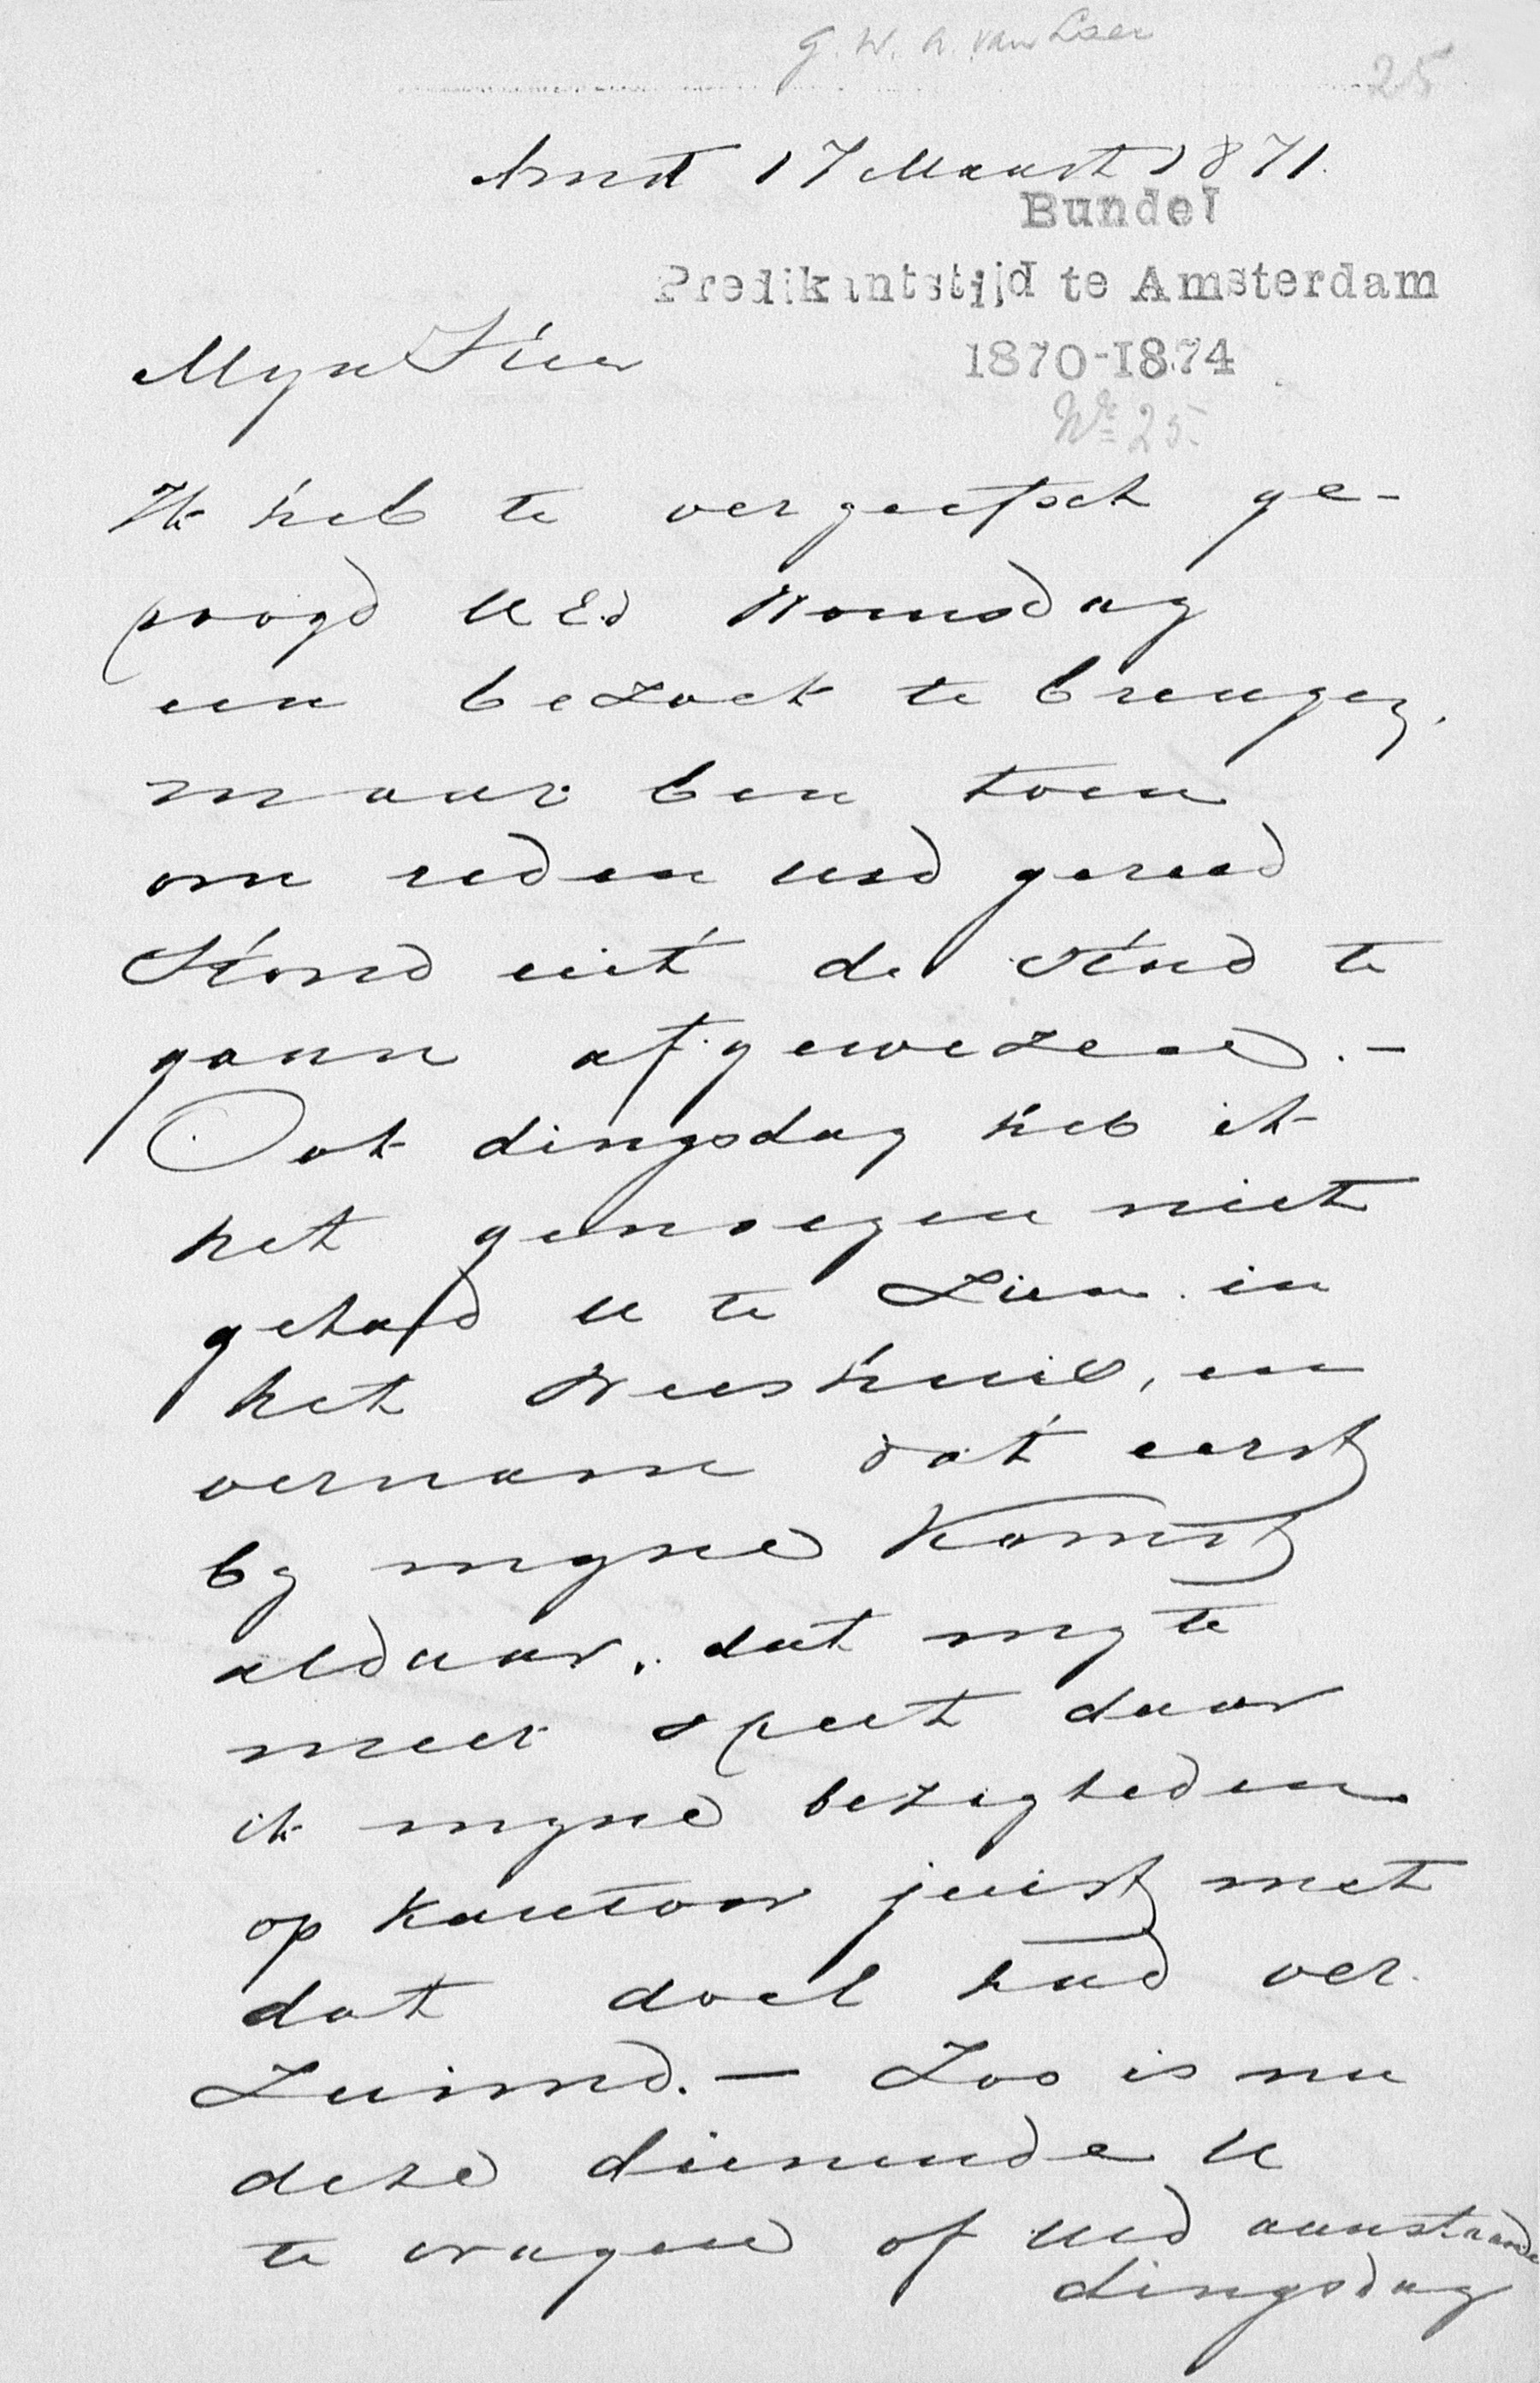 G. W. A. van Loen
25
Amst 17 Maart 1871.
Bundel
Predikantstijd te Amsterdam
1870-1874
No 25.
Myn Heer
Ik heb te vergeefsch ge-
poogd UEd Woensdag
een bezoek te brengen,
maar ben toen
om reden Ued gereed
stond uit de stad te
gaan afgewezen. -
Ook dingsdag heb ik
het genoegen niet
gehad U te zien in
het Weeshuis, en
vernam dat eerst
by myne komst
aldaar. dat my te
meer speet daar
ik myne bezigheden
op kantoor juist met
dat doel had ver
zuimd. - Zoo is nu
deze dienende U
te vragen of Ued aanstaande
dingsdag